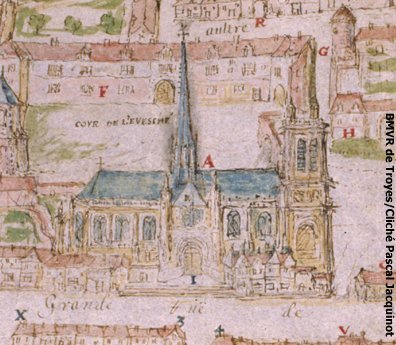 aultre R
G
F
COVR DE L'EVESCHE
H
A
I
Grande rue de
X 3 4 V
BMVR de Troyes/Cliché Pascal Jacquinot